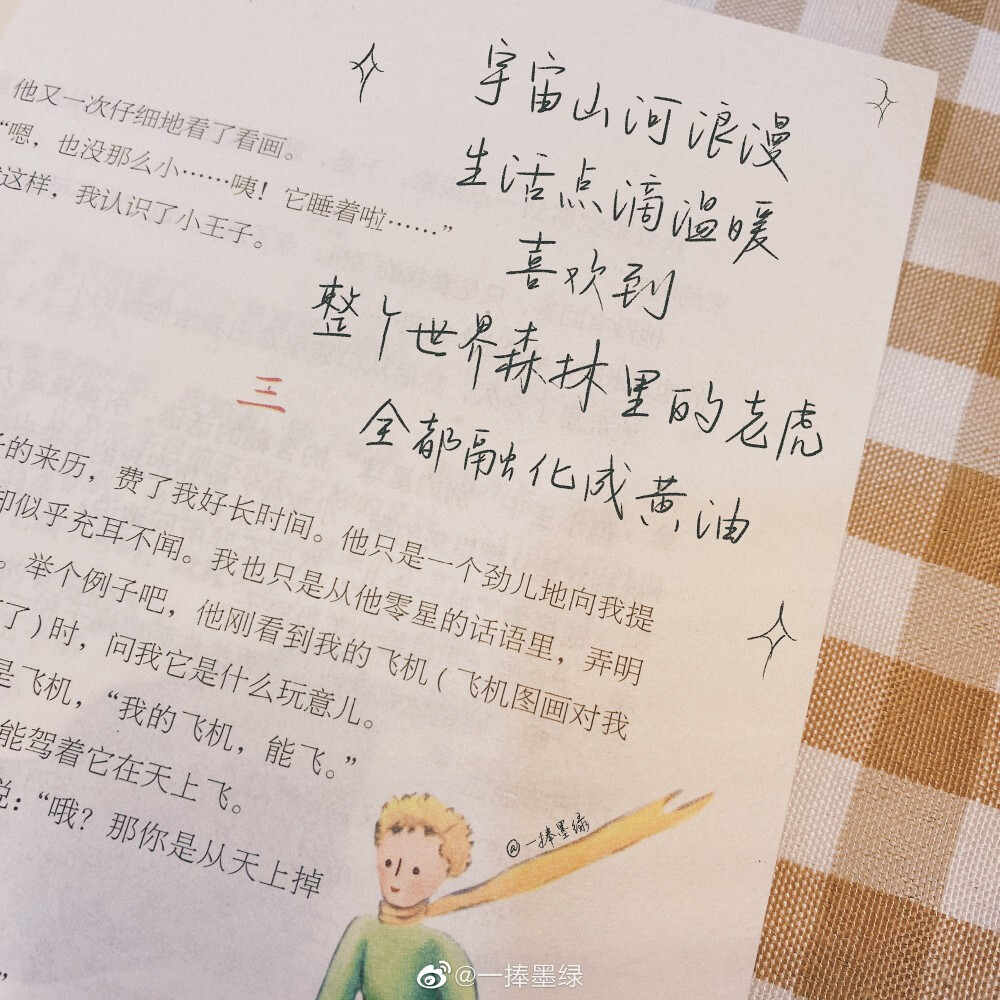 他又一次仔细地看了看画。
“嗯，也没那么小……咦！它睡着啦……”
这样，我认识了小王子。
宇宙山河浪漫
生活点滴温暖
喜欢到
整个世界森林里的老虎
全都融化成黄油
三
的来历，费了我好长时间。他只是一个劲儿地向我提
却似乎充耳不闻。我也只是从他零星的话语里，弄明
。举个例子吧，他刚看到我的飞机(飞机图画对我
了)时，问我它是什么玩意儿。
是飞机，“我的飞机，能飞。”
能驾着它在天上飞。
说：“哦？那你是从天上掉
”
@一捧墨绿
@一捧墨绿